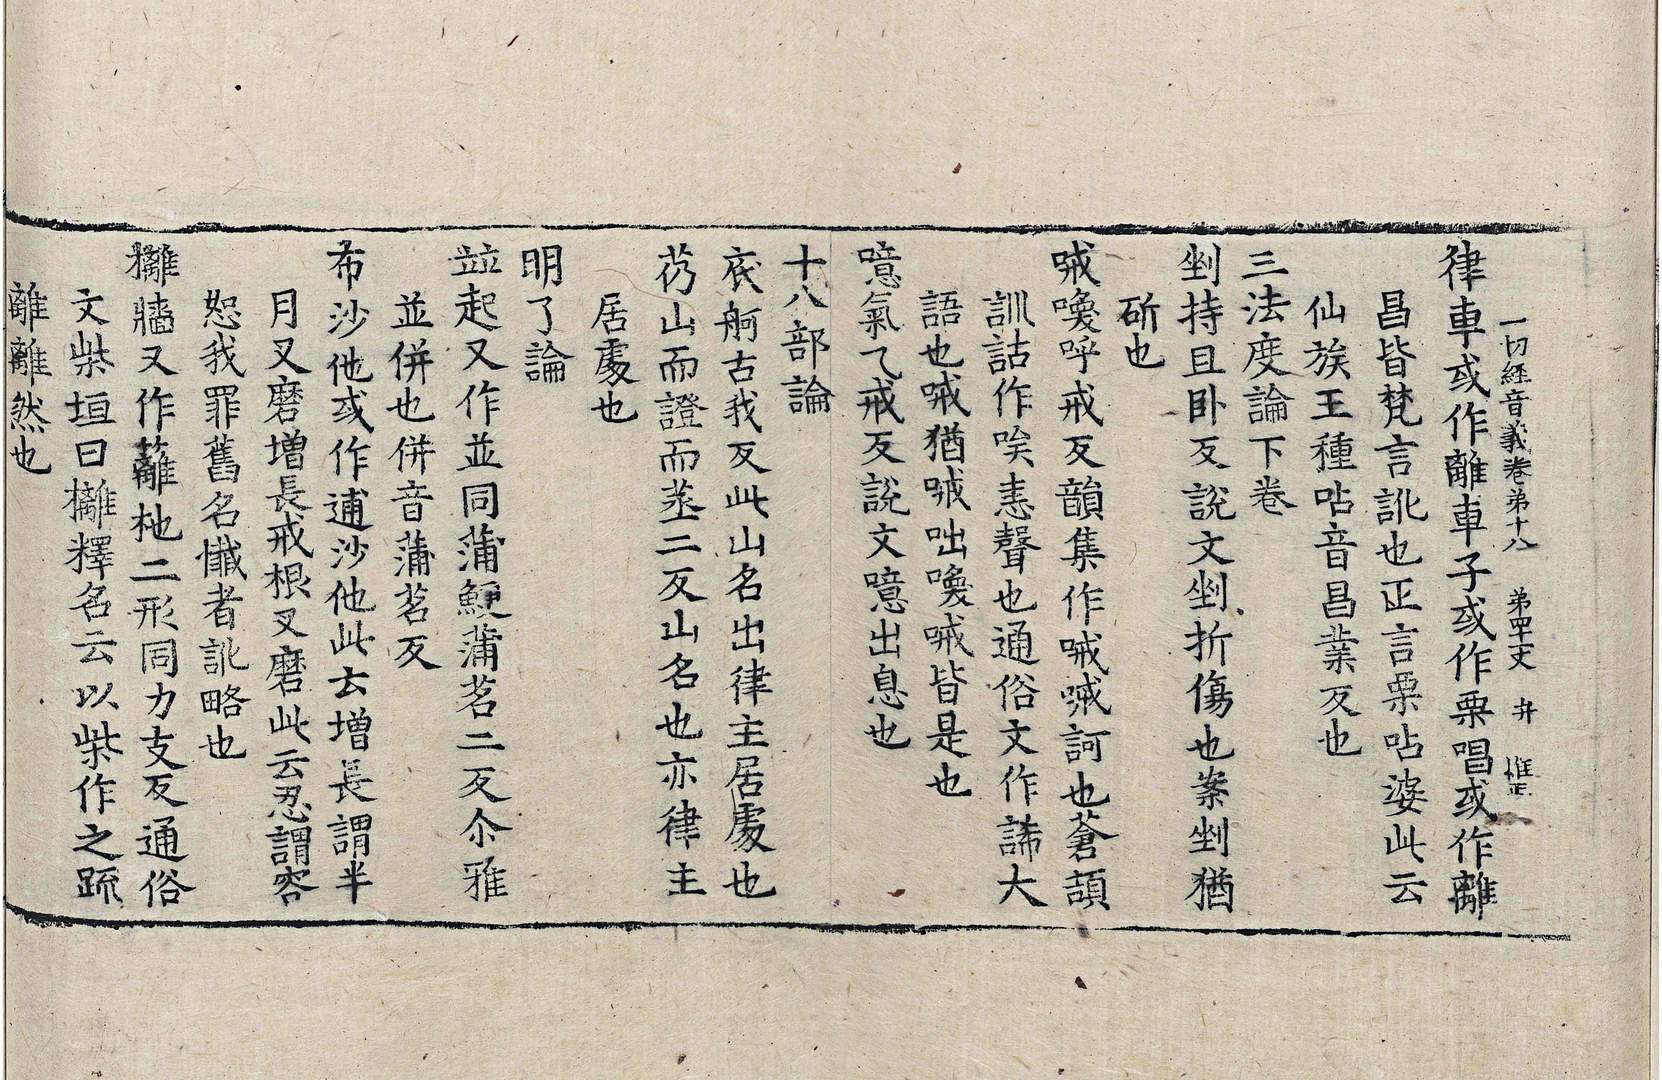 一切經音義卷苐十八 苐罕丈 弁 惟正
律車或作離車子或作栗唱或作離
昌皆梵言訛也正言栗呫婆此云
仙族王種呫音昌葉反也
三法度論下卷
剉持且卧反說文剉折傷也案剉猶
斫也
㖑喚呼戒反韻集作㖑㖑訶也蒼頡
訓詁作唉恚聲也通俗文作諦大
語也㖑猶㖑咄喚㖑皆是也
噫氣乙戒反說文噫出息也
十八部論
底舸古我反此山名出律主居處也
芿山而證而蒸二反山名也亦律主
居處也
明了論
竝起又作並同蒲鯁蒲茗二反尒雅
並併也併音蒲茗反
布沙他或作逋沙他此云增長謂半
月叉磨增長戒根叉磨此云忍謂容
恕我罪舊名懺者訛略也
欐牆又作籬杝二形同力支反通俗
文柴垣曰欐釋名云以柴作之疏
離離然也